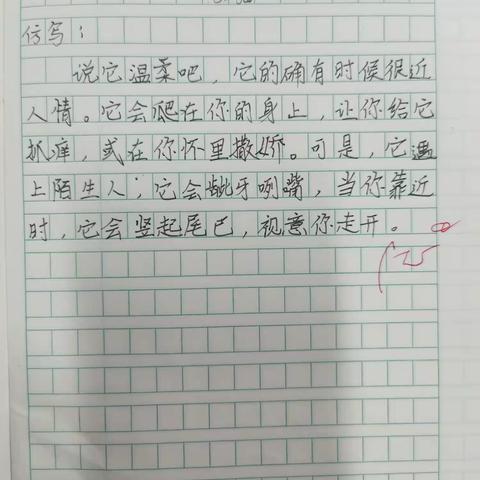 仿写：
说它温柔吧，它的确有时候很近
人情。它会爬在你的身上，让你给它
抓痒，或在你怀里撒娇。可是，它遇
上陌生人，它会龇牙咧嘴，当你靠近
时，它会竖起尾巴，视意你走开。